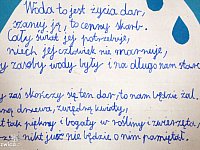 Woda to jest życia dar,
szanuj ją, to cenny skarb.
Cały świat jej potrzebuje,
niech jej człowiek nie marnuje,
y zasoby wody były i na długo nam
y zaś skończy się ten dar, to nam będzie żal,
ną drzewa, zwiędną kwiaty,
t tak piękny i bogaty w rośliny i zwierzęta
nikt już nie będzie o nim pamiętał.